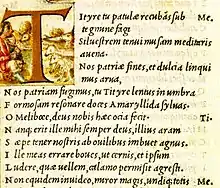 TItyre tu patulæ recubãs sub Me.
tegmine fagi
Siluestrem tenui musam meditaris
auena.
Nos patriæ fines, et dulcia linqui
mus arua,
N os patriam fugimus, tu Tityre lentus in umbra
F ormosam resonare doces Amaryllida syluas.
O Melibœe, deus nobis hæc ocia fecit. Ti.
N anq; erit ille mihi semper deus, illius aram
S æpe tener nostris ab ouilibus imbuet agnus.
I lle meas errare boues, ut cernis, et ipsum
L udere, quæ uellem, calamo permisit agresti.
N on equidem inuideo, miror magis, undiq; totis